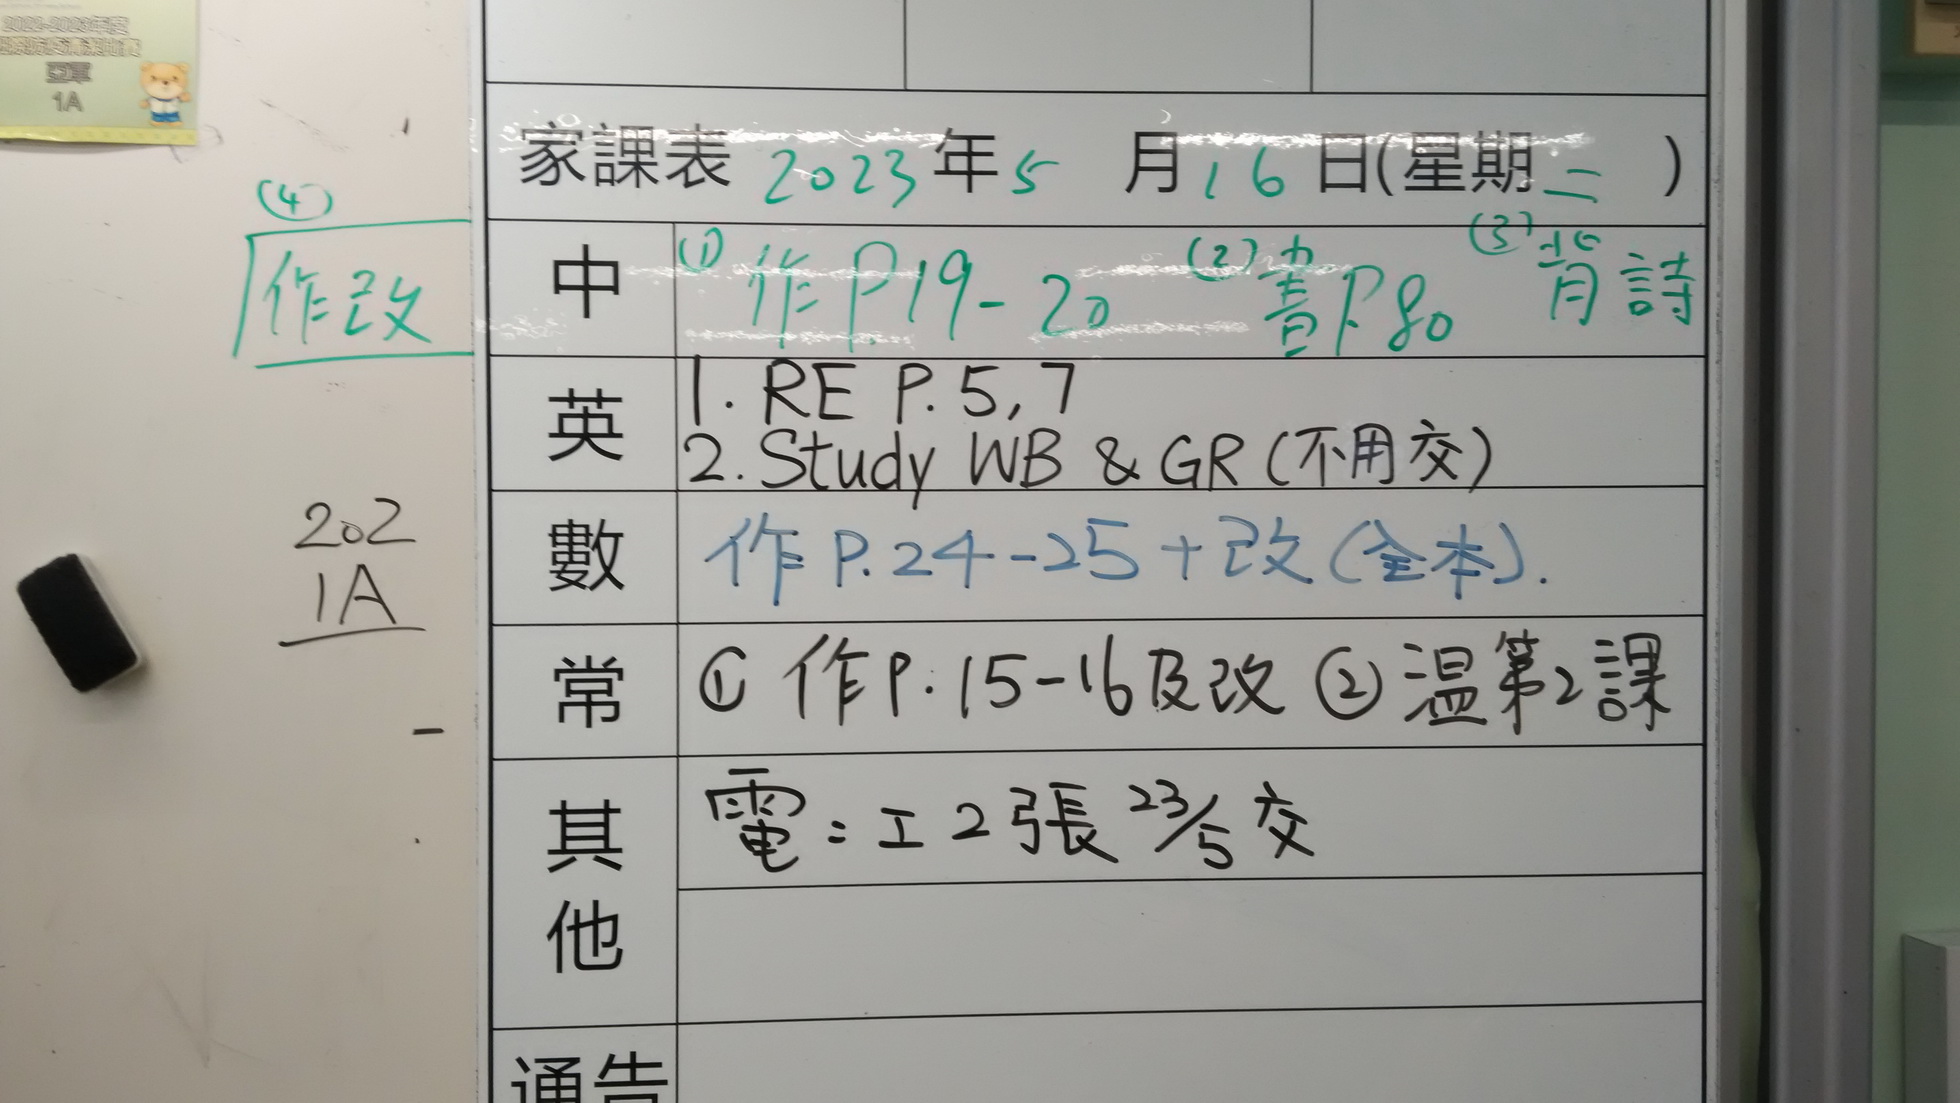 1A
家課表 2023年5月16日(星期二)
(4)
作改
中 (1) 作P.19-20 (2) 書P.80 (3) 背詩
英 1. RE P. 5, 7
2. Study WB & GR (不用交)
202
1A
數 作 P. 24-25 + 改 (全本).
常 ① 作 P. 15-16及改 ② 温第2課
其他 電: 工2張 23/5 交
通告